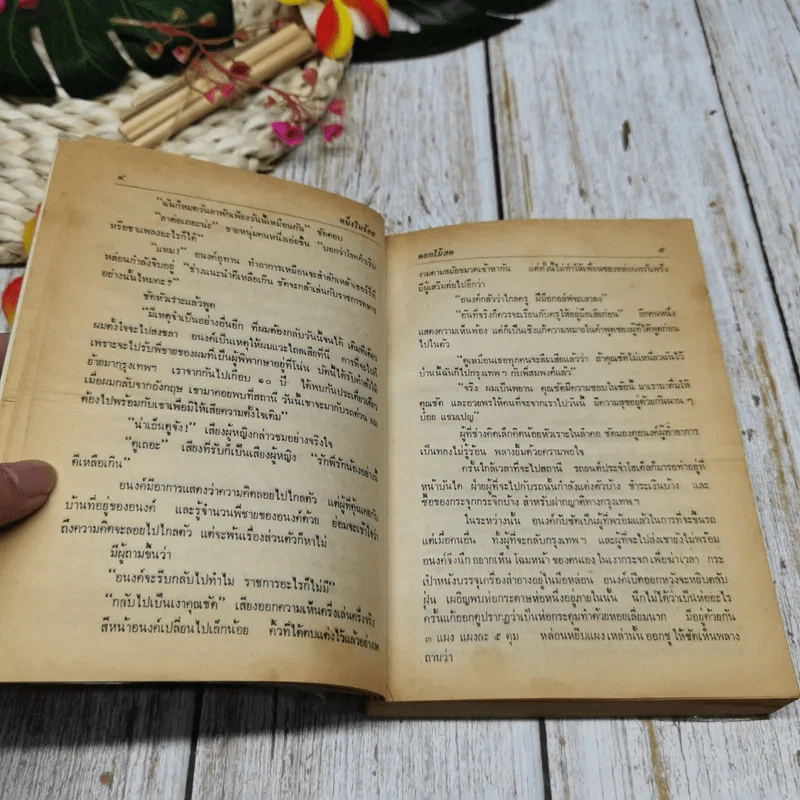 ๔ หนึ่งในร้อย
"ฉันก็หมดวันลาพักเพียงวันนี้เหมือนกัน" ชัดตอบ
"ลาต่อเถอะน่ะ" ชายหนุ่มคนหนึ่งเย่อขึ้น "บอกว่าโรคกำเริบ
หรือขาแพลงอะไรก็ได้"
"แหม!" อนงค์อุทาน ทำอาการเหมือนจะสำลักเหล้าเชอร์รี่ที่
หล่อนกำลังจิบอยู่ "ช่างแนะนำดีเหลือเกิน ชัดจะกล้าเล่นกับราชการทหาร
อย่างนั้นไหมคะ?"
ชัดหัวเราะแล้วพูด
"มีเหตุจำเป็นอย่างอื่นอีก ที่ผมต้องกลับวันนี้จนได้ เดิมทีเดียว
ผมตั้งใจจะไปสงขลา อนงค์เป็นเหตุให้ผมแวะไถลเสียที่นี่ การที่จะไป
เพราะจะไปรับพี่ชายของผมที่เป็นผู้พิพากษาอยู่ที่โน่น บัดนี้ได้รับคำสั่งให้
ย้ายมากรุงเทพฯ เราจากกันไปเกือบ ๑๐ ปี ได้พบกันประเดี๋ยวเดียว
เมื่อผมกลับจากอังกฤษ เขามาคอยพบที่สถานี วันนี้เขาจะมากับรถด่วน ผม
ต้องไปพร้อมกับเขาเพื่อมิให้เสียความตั้งใจเดิม"
"น่าเอ็นดูจัง!" เสียงผู้หญิงกล่าวชมอย่างจริงใจ
"ดูเถอะ" เสียงที่รับก็เป็นเสียงผู้หญิง "รักพี่รักน้องอย่างนี้
ดีเหลือเกิน"
อนงค์มีอาการแสดงว่าความคิดลอยไปไกลตัว แต่ผู้ที่คุ้นเคยกับ
บ้านที่อยู่ของอนงค์ และรู้จำนวนพี่ชายของอนงค์ด้วย ย่อมจะเข้าใจว่า
ถึงความคิดจะลอยไปไกลตัว แต่จะพ้นเรื่องส่วนตัวก็หาไม่
มีผู้ถามขึ้นว่า
"อนงค์จะรีบกลับไปทำไม ราชการอะไรก็ไม่มี"
"กลับไปเป็นเงาคุณชัด" เสียงออกความเห็นครึ่งเล่นครึ่งจริง
สีหน้าอนงค์เปลี่ยนไปเล็กน้อย คิ้วที่ได้ตบแต่งไว้แล้วอย่างงด
ดอกไม้สด ๕
งามตามสมัยขมวดเข้าหากัน แต่ทั้งนี้ไม่ทำให้เพื่อนของหล่อนพรั่นพรึง
มีผู้เสริมต่อไปอีกว่า
"อนงค์กลัวว่าไกลครู ฝีมือกอล์ฟจะเลวลง"
"อันที่จริงก็ควรจะเรียนกับครูให้อยู่มือเสียก่อน" อีกคนหนึ่ง
แสดงความเห็นพ้อง แต่ก็เป็นเชิงแก้ความหมายในคำพูดของผู้ที่ได้พูดก่อน
ไปในตัว
"ดูเหมือนเธอทุกคนจะลืมเสียแล้วว่า ถ้าคุณชัดไม่เหนี่ยวฉันไว้
ป่านนี้ฉันก็ไปกรุงเทพฯ กับพี่สมพงศ์แล้ว"
"จริง ผมเป็นพยาน คุณชัดมีความชอบในข้อนี้ มาเรามาดื่มให้
คุณชัด และอวยพรให้คนที่จะจากเราไปวันนี้ มีความสุขอยู่ด้วยกันนาน ๆ
บ๋อย แชมเปญ"
ผู้ที่ช่างคิดเล็กคิดน้อยหัวเราะในลำคอ ชัดมองดูอนงค์ผู้ทำอาการ
เป็นทองไม่รู้ร้อน พลางยิ้มด้วยความพอใจ
ครั้นใกล้เวลาที่จะไปสถานี รถยนต์ประจำโฮเต็ลก็มารอท่าอยู่ที่
หน้าบันได ฝ่ายผู้ที่จะไปกับรถนั้นกำลังแต่งตัวบ้าง ชำระเงินบ้าง และ
ซื้อของกระจุกกระจิกบ้าง สำหรับฝากญาติทางกรุงเทพฯ
ในระหว่างนั้น อนงค์กับชัดเป็นผู้ที่พร้อมแล้วในการที่จะขึ้นรถ
แต่เมื่อคนอื่น ทั้งผู้ที่จะกลับกรุงเทพฯ และผู้ที่จะไปส่งเขายังไม่พร้อม
อนงค์จึงนึก อยากเห็น โฉมหน้า ของตนเอง ในเงากระจก เพื่อฆ่าเวลา กระ
เป๋าหนังบรรจุเครื่องสำอางอยู่ในมือหล่อน อนงค์เปิดออกหวังจะหยิบตลับ
ฝุ่น เผอิญพบห่อกระดาษห่อหนึ่งอยู่ภายในนั้น นึกไม่ได้ว่าเป็นห่ออะไร
ครั้นแก้ออกดูปรากฏว่าเป็นห่อกระดุมทำด้วยหอยเลี่ยมนาก มีอยู่ด้วยกัน
๓ แผง แผงละ ๕ ดุม หล่อนหยิบแผง เหล่านั้น ออกชู ให้ชัดเห็นพลาง
ถามว่า